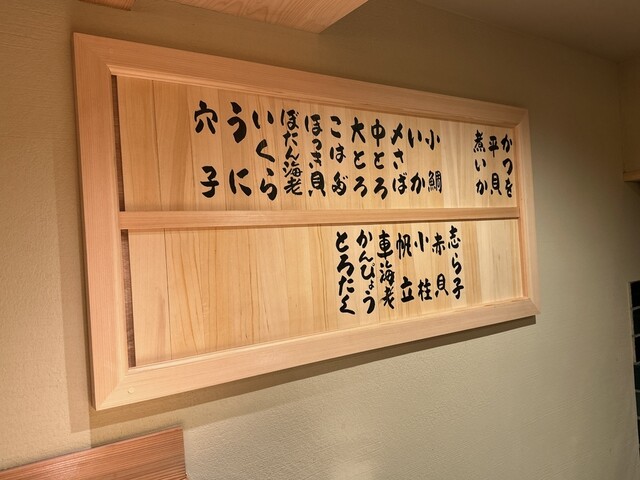 かつを
平貝
煮いか
小鯛
いか
〆さば
中とろ
大とろ
こはだ
ほっき貝
ぼたん海老
いくら
うに
穴子
志ら子
赤貝
小柱
帆立
車海老
かんぴょう
とろたく